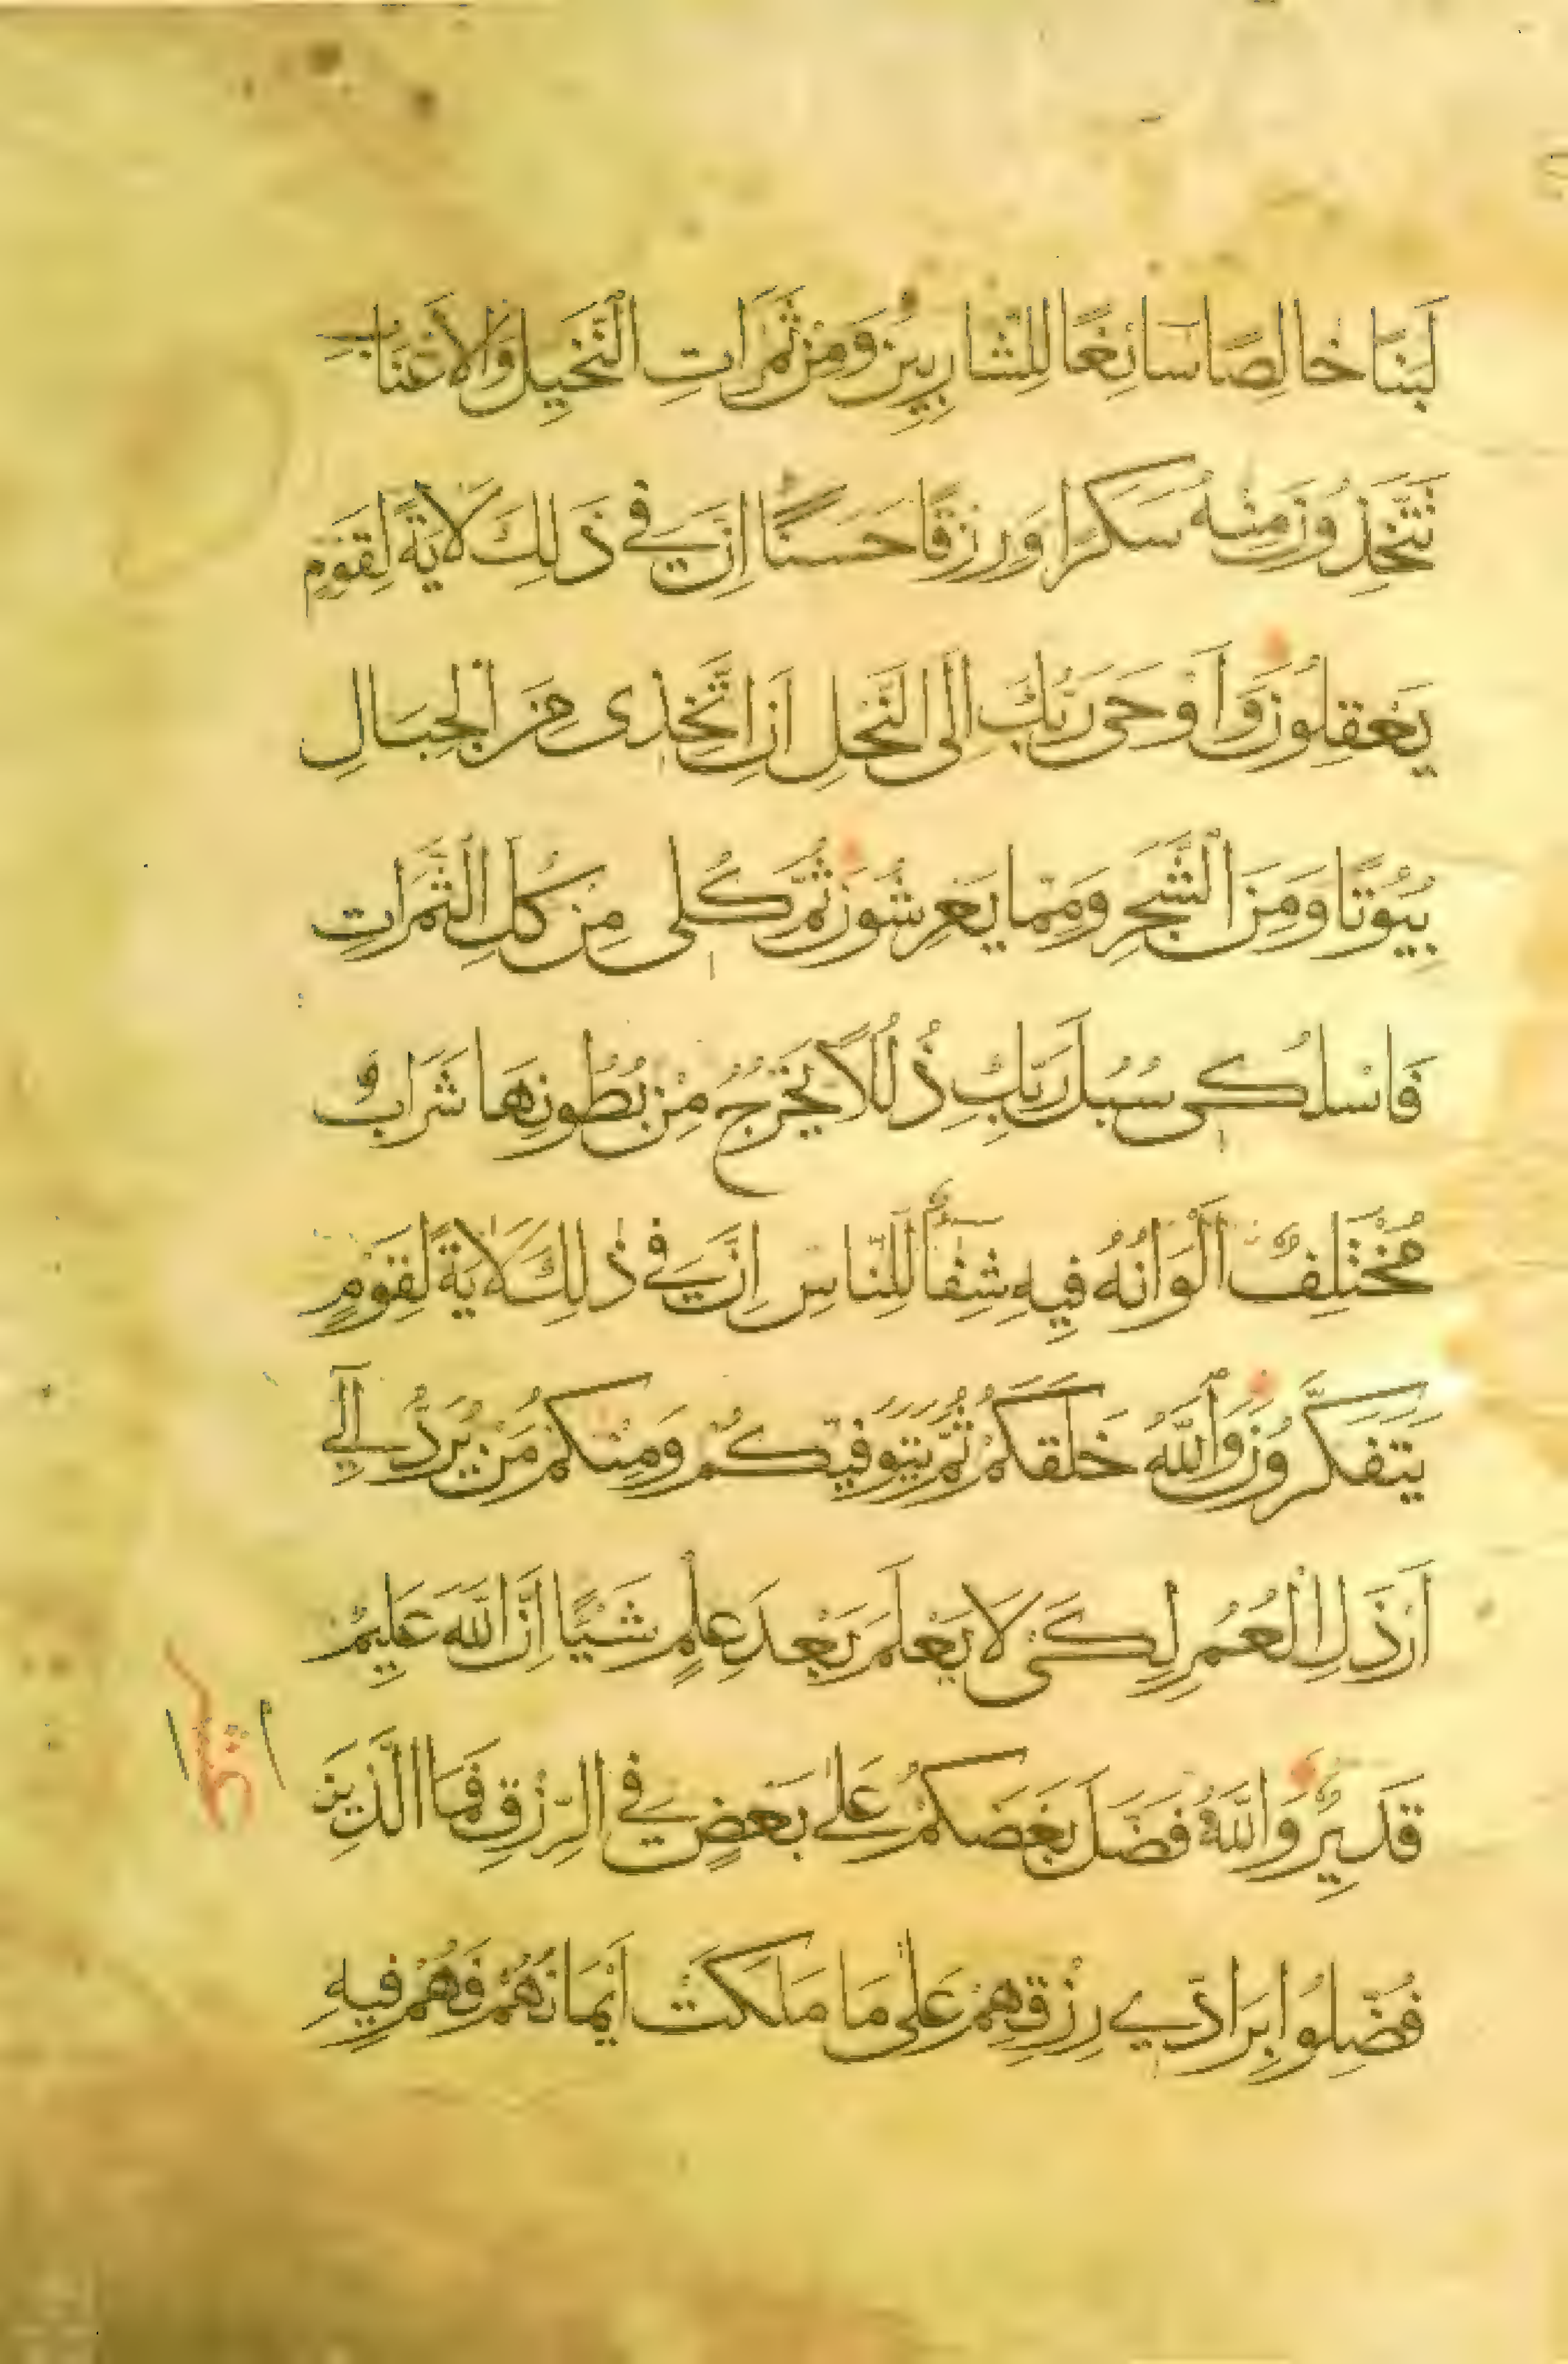 لَبَنًا خَالِصًا سَائِغًا لِلشَّارِبِينَ وَمِنْ ثَمَرَاتِ النَّخِيلِ وَالْأَعْنَابِ
تَتَّخِذُونَ مِنْهُ سَكَرًا وَرِزْقًا حَسَنًا إِنَّ فِي ذَٰلِكَ لَآيَةً لِقَوْمٍ
يَعْقِلُونَ وَأَوْحَى رَبُّكَ إِلَى النَّحْلِ أَنِ اتَّخِذِى مِنَ الْجِبَالِ
بُيُوتًا وَمِنَ الشَّجَرِ وَمِمَّا يَعْرِشُونَ ثُمَّ كُلِى مِنْ كُلِّ الثَّمَرَاتِ
فَاسْلُكِى سُبُلَ رَبِّكِ ذُلُلًا يَخْرُجُ مِنْ بُطُونِهَا شَرَابٌ
مُخْتَلِفٌ أَلْوَانُهُ فِيهِ شِفَآءٌ لِلنَّاسِ إِنَّ فِي ذَٰلِكَ لَآيَةً لِقَوْمٍ
يَتَفَكَّرُونَ وَاللَّهُ خَلَقَكُمْ ثُمَّ يَتَوَفَّيكُمْ وَمِنْكُمْ مَنْ يُرَدُّ إِلَىٰ
أَرْذَلِ الْعُمُرِ لِكَىْ لَا يَعْلَمَ بَعْدَ عِلْمٍ شَيْئًا إِنَّ اللَّهَ عَلِيمٌ
قَدِيرٌ وَاللَّهُ فَضَّلَ بَعْضَكُمْ عَلَىٰ بَعْضٍ فِي الرِّزْقِ فَمَا الَّذِينَ
فُضِّلُوا بِرَادِّي رِزْقِهِمْ عَلَىٰ مَا مَلَكَتْ أَيْمَانُهُمْ فَهُمْ فِيهِ